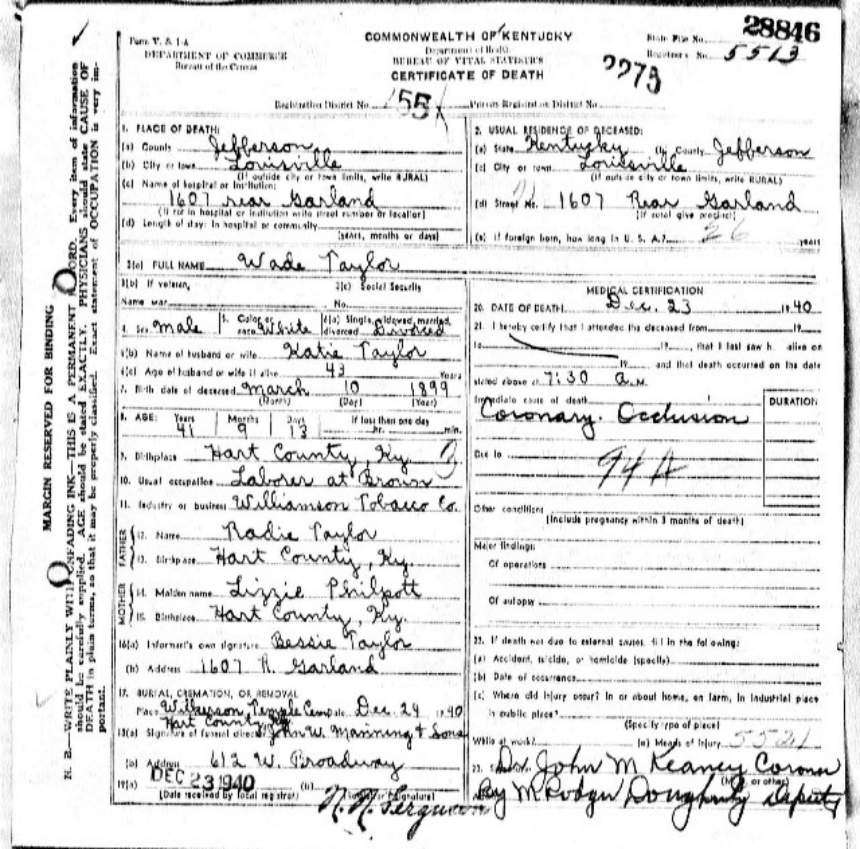 28846
Form V. S. 1-A
DEPARTMENT OF COMMERCE
Bureau of the Census
COMMONWEALTH OF KENTUCKY
Department of Health
BUREAU OF VITAL STATISTICS
CERTIFICATE OF DEATH
State File No.
Registrar's No. 5513
2273
Registration District No. 551
Primary Registration District No.
MARGIN RESERVED FOR BINDING
N. B.—WRITE PLAINLY WITH UNFADING INK—THIS IS A PERMANT RECORD. Every item of information
should be carefully supplied. AGE should be stated EXACTLY. PHYSICIANS should state CAUSE OF
DEATH in plain terms, so that it may be properly classified. Exact statement of OCCUPATION is very im-
portant.
1. PLACE OF DEATH:
(a) County Jefferson
(b) City or town Louisville
(If outside city or town limits, write RURAL)
(c) Name of hospital or institution:
1607 rear Garland
(If not in hospital or institution write street number or location)
(d) Length of stay: In hospital or community
(years, months or days)
2. USUAL RESIDENCE OF DECEASED:
(a) State Kentucky (b) County Jefferson
(c) City or town Louisville
(If outside city or town limits, write RURAL)
(d) Street No. 1607 Rear Garland
(If rural give precinct)
(e) If foreign born, how long in U. S. A.? 26 years
3(a) FULL NAME Wade Taylor
3(b) If veteran,
Name war
3(c) Social Security
No.
4. Sex Male
5. Color or race White
6(a) Single, widowed, married, divorced Divorced
6(b) Name of husband or wife Katie Taylor
6(c) Age of husband or wife if alive 43 Years
7. Birth date of deceased March 10 1899
(Month) (Day) (Year)
8. AGE: Years Months Days If less than one day
41 9 13 hr. min.
9. Birthplace Hart County, Ky
10. Usual occupation Laborer at Brown
11. Industry or business Williamson Tobacco Co.
FATHER
12. Name Radie Taylor
13. Birthplace Hart County, Ky
MOTHER
14. Maiden name Lizzie Philpott
15. Birthplace Hart County, Ky.
16(a) Informant's own signature Bessie Taylor
(b) Address 1607 R. Garland
17. BURIAL, CREMATION, OR REMOVAL
Place Wilkerson Temple Cem Date Dec 24 1940
Hart County Ky
18(a) Signature of funeral director John W. Manning & Sons
(b) Address 612 W. Broadway
19(a) DEC 23 1940 (b) N. N. Ferguson
(Date received by local registrar) (Registrar's signature)
MEDICAL CERTIFICATION
20. DATE OF DEATH Dec. 23 1940
21. I hereby certify that I attended the deceased from 19
to 19, that I last saw h alive on
19 and that death occurred on the date
stated above at 7:30 a.M.
Immediate cause of death
DURATION
Coronary Occlusion
Due to
94A
Other conditions
(Include pregnancy within 3 months of death)
Major findings:
Of operations
Of autopsy
22. If death not due to external causes, fill in the following:
(a) Accident, suicide, or homicide (specify)
(b) Date of occurrence
(c) Where did injury occur? In or about home, on farm, in industrial place
in public place?
(Specify type of place)
While at work? (e) Means of injury 5521
23. Dr. John M Keaney Coroner
(M.D. or other)
By M Rodger Dougherty Deputy